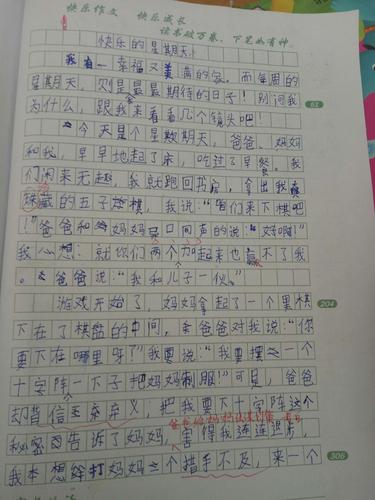 快乐作文 快乐成长
读书破万卷，下笔如有神
快乐的星期天
我有一幸福又美满的家。而每周的
星期天，则是最是期待的日子！别问我
为什么，跟我来看看几个镜头吧！
63
今天是个星期天，爸爸、妈妈
和我，早早地起了床，吃过了早餐。我
们闲来无趣，我就跑回书房，拿出我
珠藏的五子棋，我说：“咱们来下棋吧
！”爸爸和妈妈口同声的说：“好啊！”
我心想：就你们两个加起来也赢不了我
。爸爸说：“我和儿子一伙。”
游戏开始了，妈妈拿起了一个黑棋
204
下在了棋盘的中间，爸爸对我说：“你
要下在哪里呀？”我说：“我要摆一个
十字阵一下子把妈妈制服！”可是，爸爸
却背信弃义，把我要下十字阵这个
秘密告诉了妈妈，害得我连连退步，
我本想给打妈妈个措手不及，来一个
306